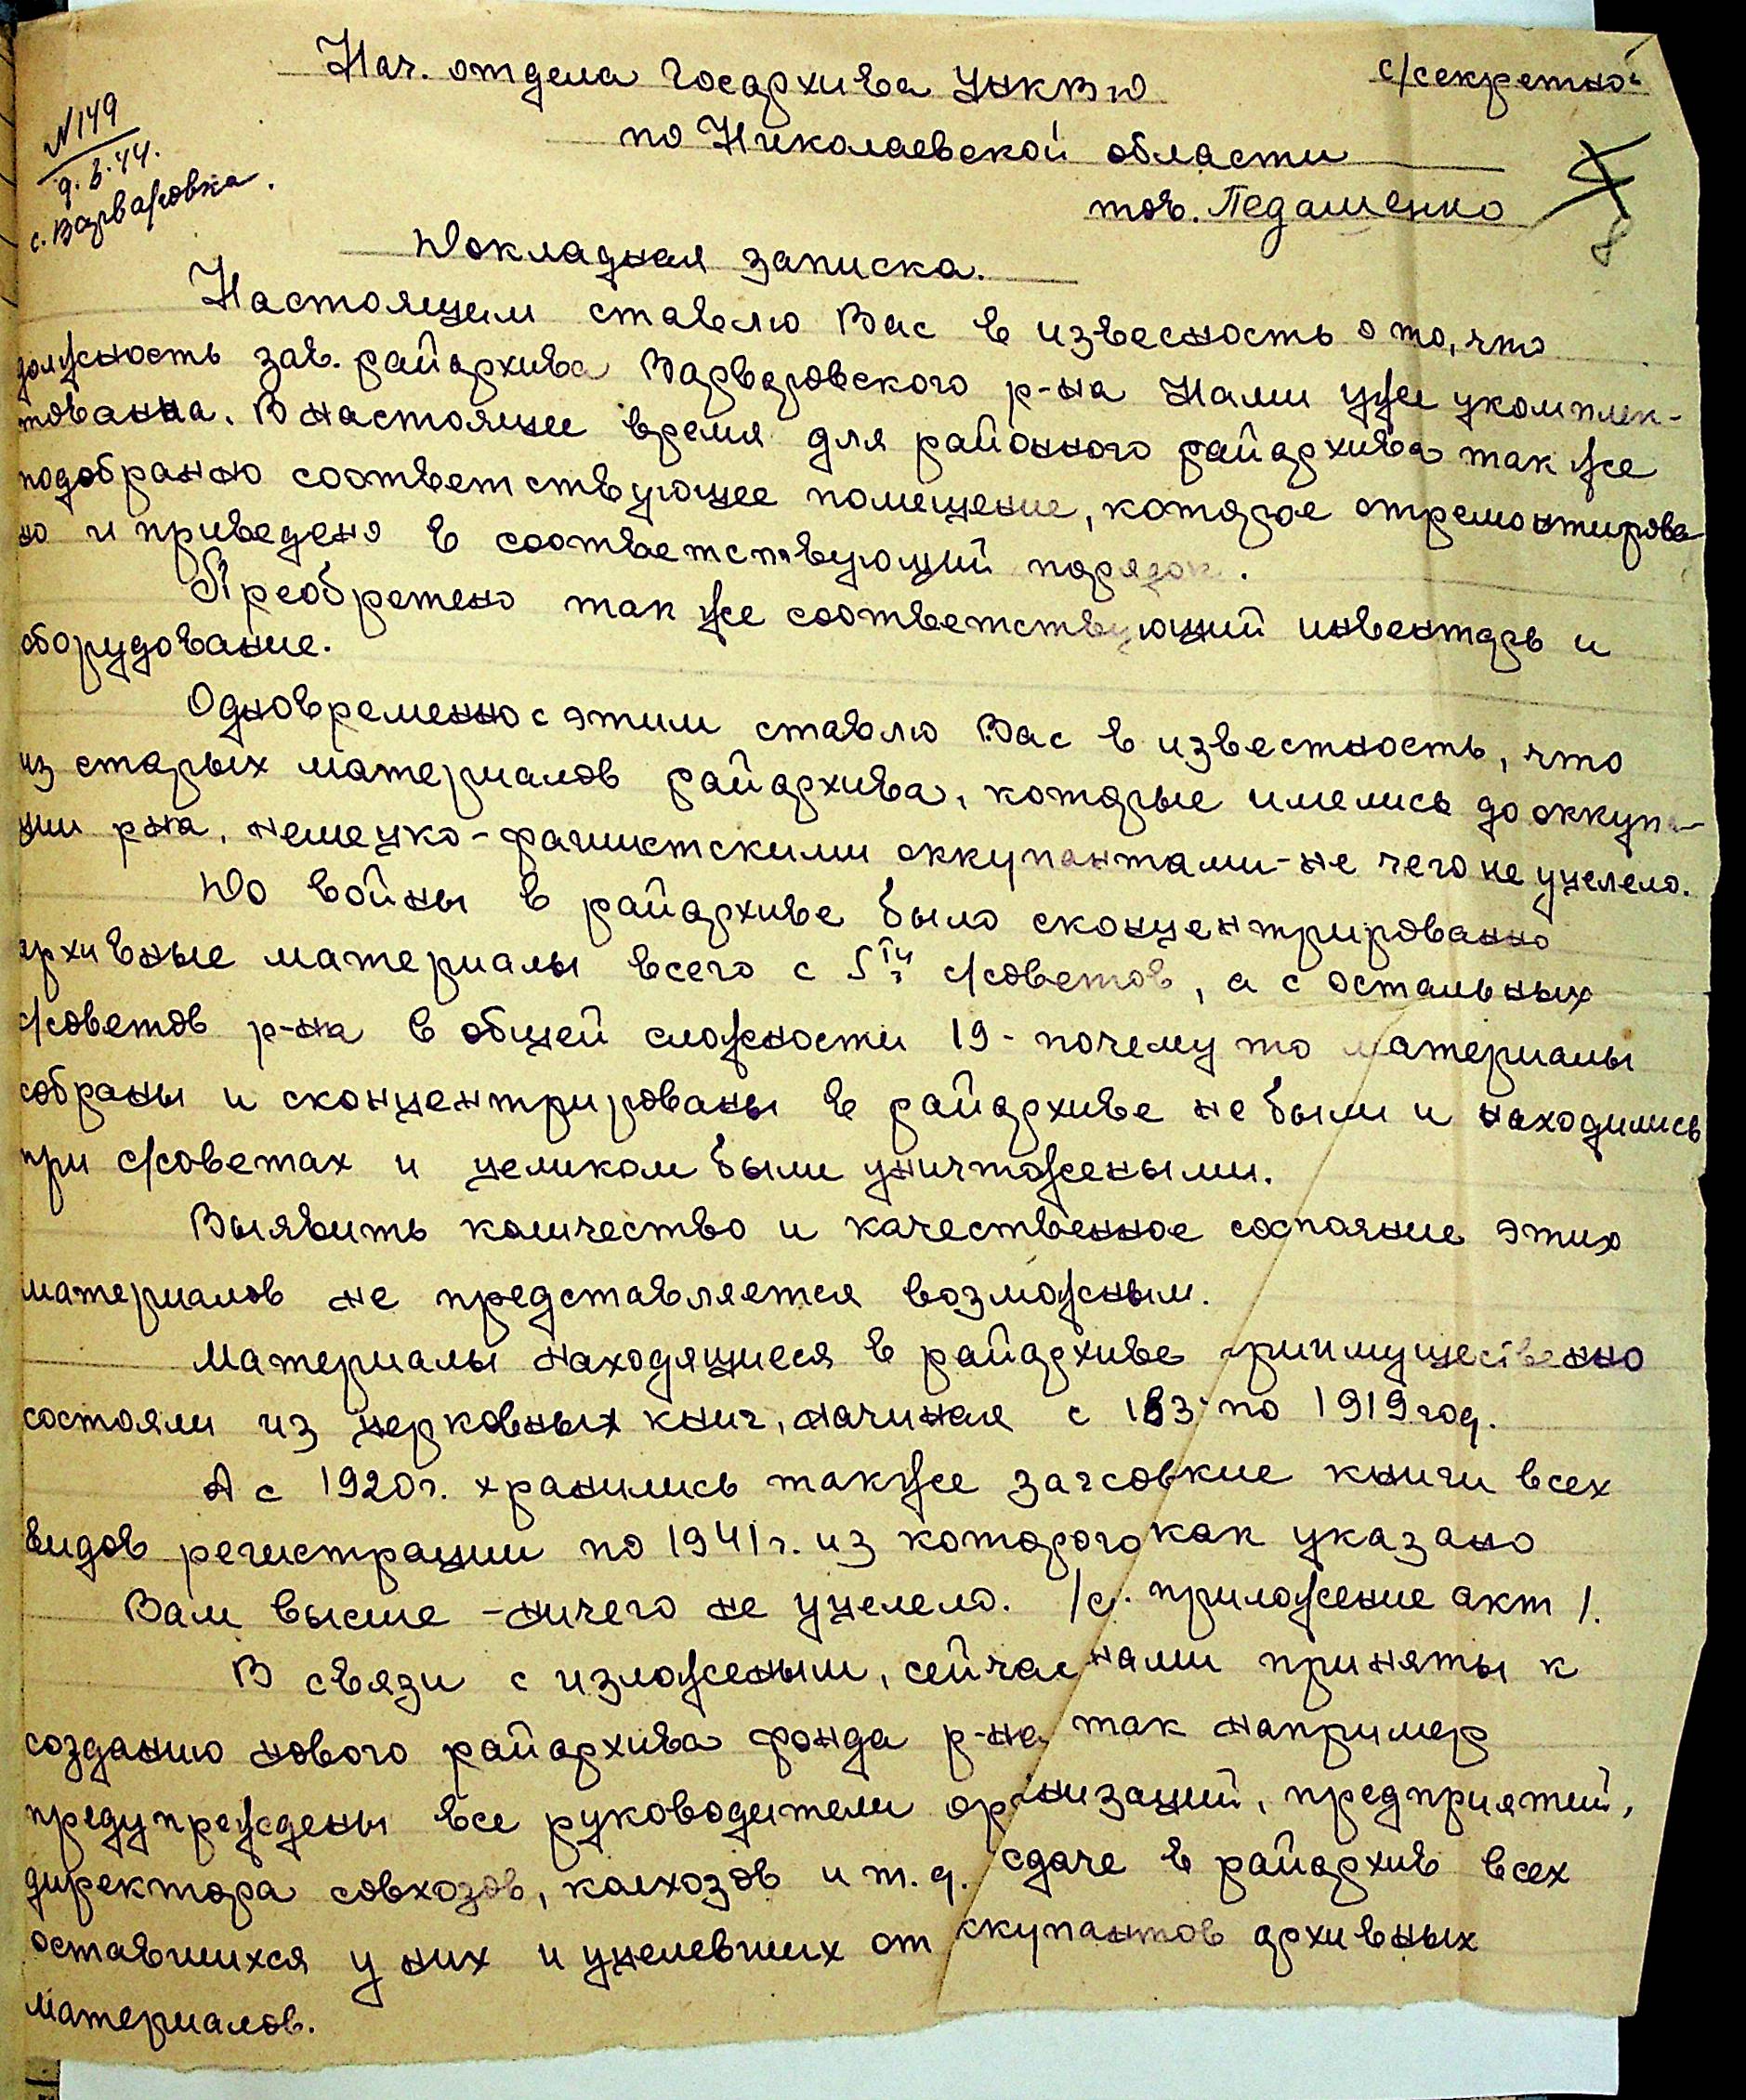 с/секретно
Нач. отдела Госархива УНКВД
по Николаевской области
тов. Педашенко
№149
9.8.44.
с. Варваровка.
Докладная записка.
Настоящим ставлю Вас в известность о то, что
должность зав. райархива Варваровского р-на Нами уже укомплек-
тованна. В настоящее время для районного райархива так же
подобранно соответствующее помещение, которое отремонтирова-
но и приведено в соответствующий порядок.
Преобретено так же соответствующий инвентарь и
оборудование.
Одновременно с этим ставлю Вас в известность, что
из старых материалов райархива, которые имелись до оккупа-
ции р-на, немецко-фашистскими оккупантами - не чего не уцелело.
До войны в райархиве было сконцентрированно
архивные материалы всего с 5 с/советов, а с остальных
с/советов р-на в общей сложности 19 - почему то материалы
собраны и сконцентрированы в райархиве не были и находились
при с/советах и целиком были уничтожеными.
Выявить количество и качественное состояние этих
материалов не представляется возможным.
Материалы находящиеся в райархиве приимущественно
состояли из церковных книг, начиная с по 1919 год.
А с 1920г. хранились также загсовские книги всех
видов регистрации по 1941г. из которого как указано
Вам высше - ничего не уцелело. /с. приложение акт/.
В связи с изложеным, сейчас нами приняты к
созданию нового райархива фонда р-на так например
предупреждены все руководители организаций, предприятий,
директора совхозов, колхозов и т.д. сдаче в райархив всех
оставшихся у них и уцелевших от оккупантов архивных
материалов.